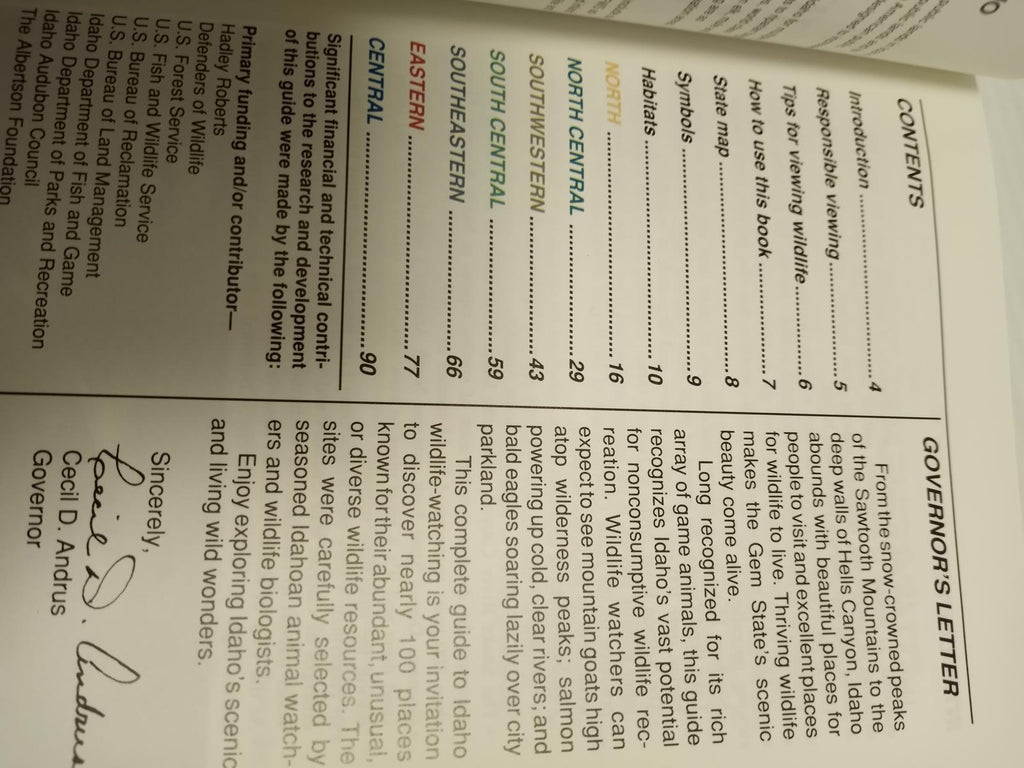 CONTENTS
Introduction ................................ 4
Responsible viewing ............... 5
Tips for viewing wildlife ........... 6
How to use this book ............... 7
State map ................................ 8
Symbols ................................... 9
Habitats .................................. 10
NORTH ................................... 16
NORTH CENTRAL .................. 29
SOUTHWESTERN ................... 43
SOUTH CENTRAL ................... 59
SOUTHEASTERN .................... 66
EASTERN ................................ 77
CENTRAL ................................ 90
Significant financial and technical contri-
butions to the research and development
of this guide were made by the following:
Primary funding and/or contributor—
Hadley Roberts
Defenders of Wildlife
U.S. Forest Service
U.S. Fish and Wildlife Service
U.S. Bureau of Reclamation
U.S. Bureau of Land Management
Idaho Department of Fish and Game
Idaho Department of Parks and Recreation
Idaho Audubon Council
The Albertson Foundation
GOVERNOR'S LETTER
From the snow-crowned peaks
of the Sawtooth Mountains to the
deep walls of Hells Canyon, Idaho
abounds with beautiful places for
people to visit and excellent places
for wildlife to live. Thriving wildlife
makes the Gem State's scenic
beauty come alive.
Long recognized for its rich
array of game animals, this guide
recognizes Idaho's vast potential
for nonconsumptive wildlife rec-
reation. Wildlife watchers can
expect to see mountain goats high
atop wilderness peaks; salmon
powering up cold, clear rivers; and
bald eagles soaring lazily over city
parkland.
This complete guide to Idaho
wildlife-watching is your invitation
to discover nearly 100 places
known for their abundant, unusual,
or diverse wildlife resources. The
sites were carefully selected by
seasoned Idahoan animal watch-
ers and wildlife biologists.
Enjoy exploring Idaho's scenic
and living wild wonders.
Sincerely,
Cecil D. Andrus
Cecil D. Andrus
Governor